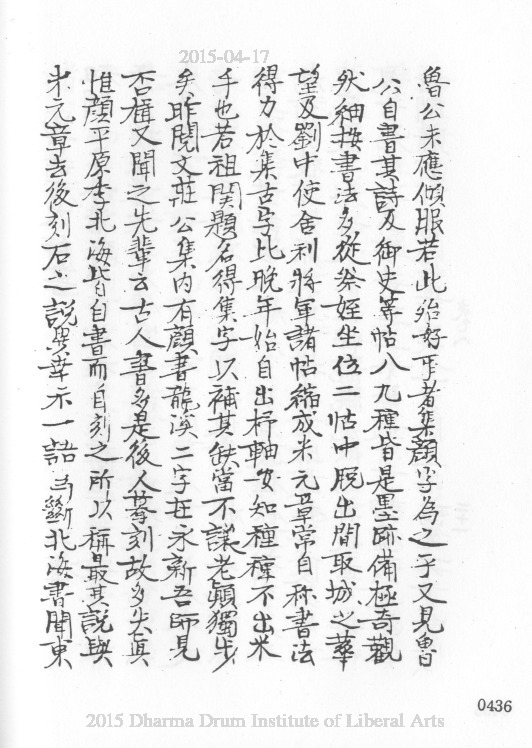 2015-04-17
魯公未應傾服若此殆好事者集顏字為之乎又見魯
公自書其詩及御史等帖八九種皆是墨跡備極奇觀
然細按書法多從祭姪坐位二帖中脫出間取城之華
望及劉中使舍利將軍諸帖縮成米元章常自称書法
得力於集古字比晚年始自出杼軸安知種種不出米
手也若祖関題名得集字以補其缺當不讓老顛獨步
矣昨閱文莊公集內有顏書龍溪二字在永新吾師見
否楫又聞之先輩云古人書多是後人摹刻故多失真
惟顏平原李北海皆自書而自刻之所以稱最其說與
米元章去後刻石之說異幸示一語 北海書聞東
0436
2015 Dharma Drum Institute of Liberal Arts